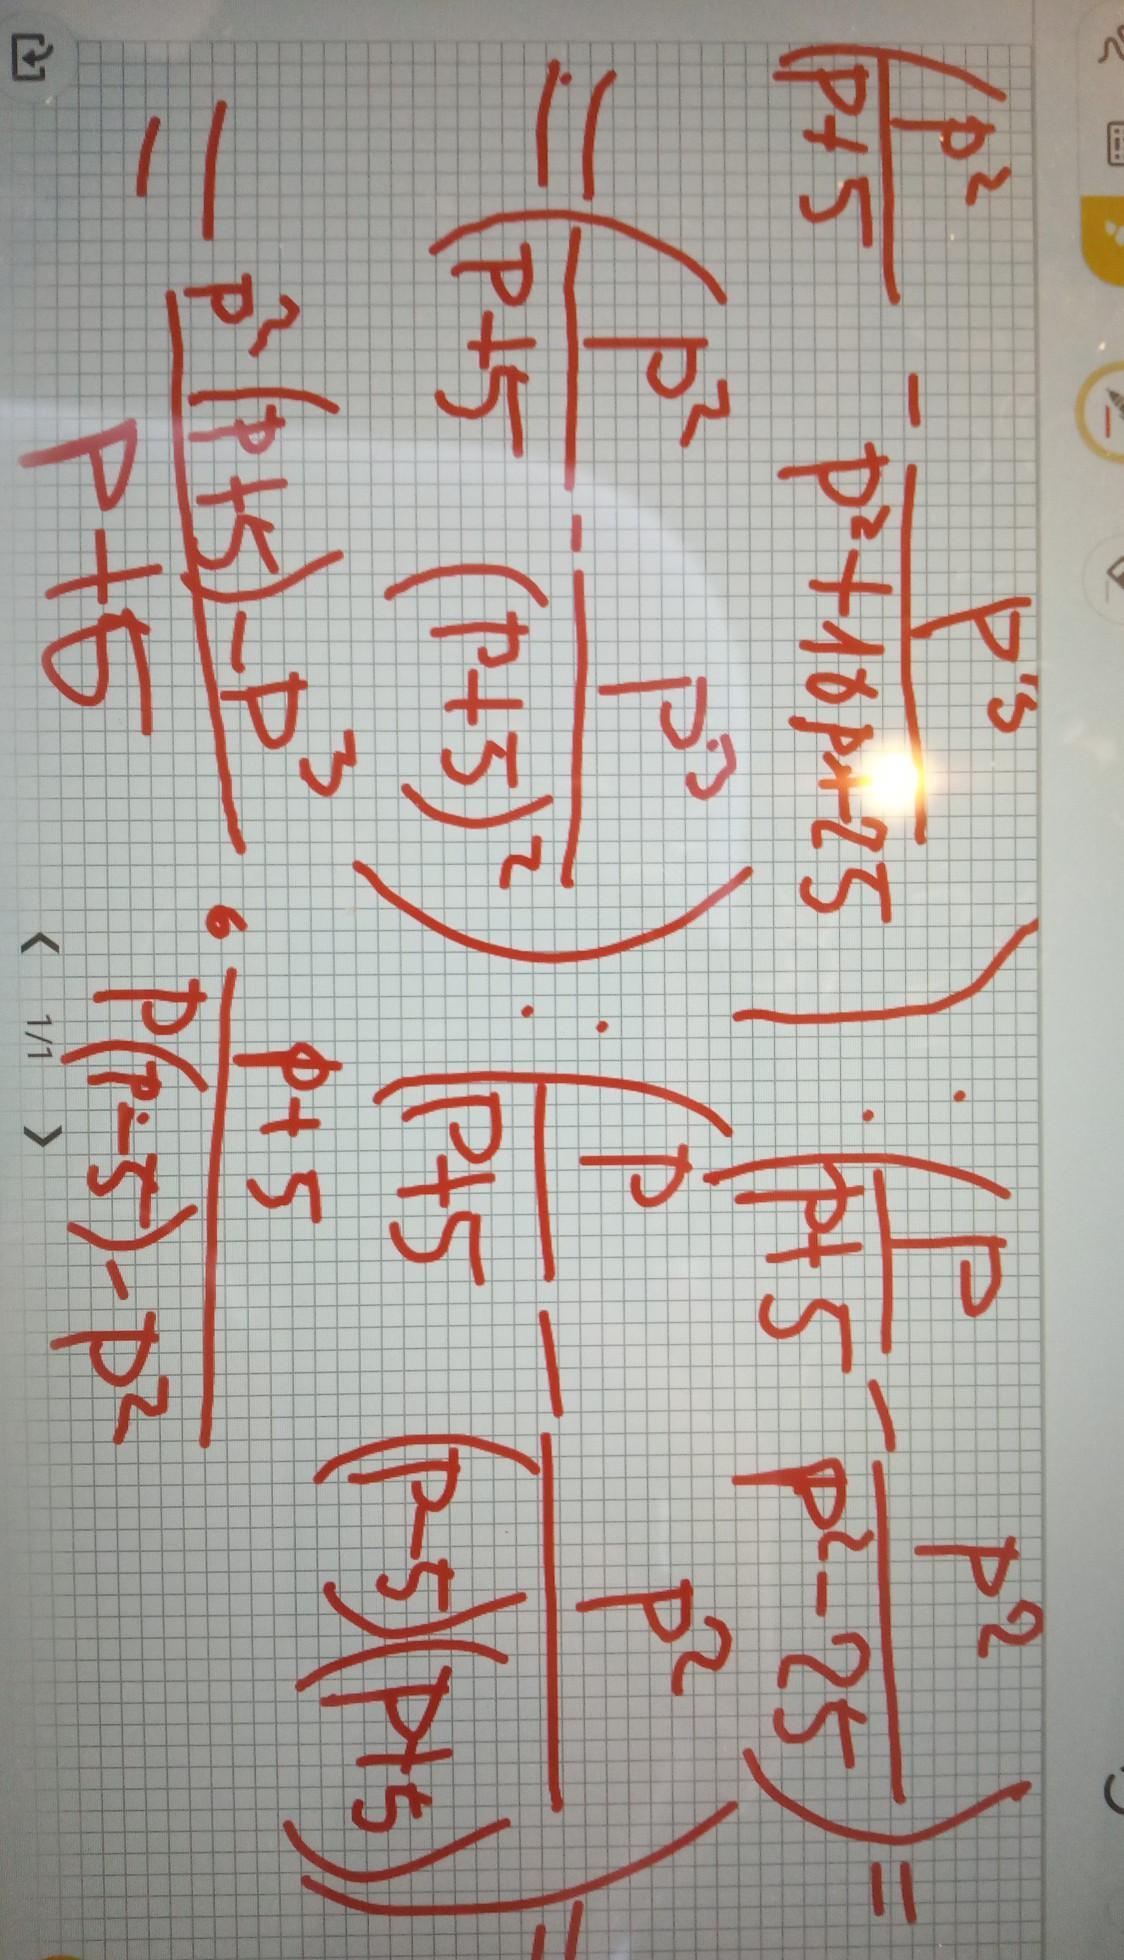 (p²/(p+5) - p³/(p²+10p+25)) : (p/(p+5) - p²/(p²-25)) =
= (p²/(p+5) - p³/(p+5)²) : (p/(p+5) - p²/((p-5)(p+5))) =
= (p²(p+5)-p³)/(p+5) · (p+5)/(p(p-5)-p²)
< 1/1 >